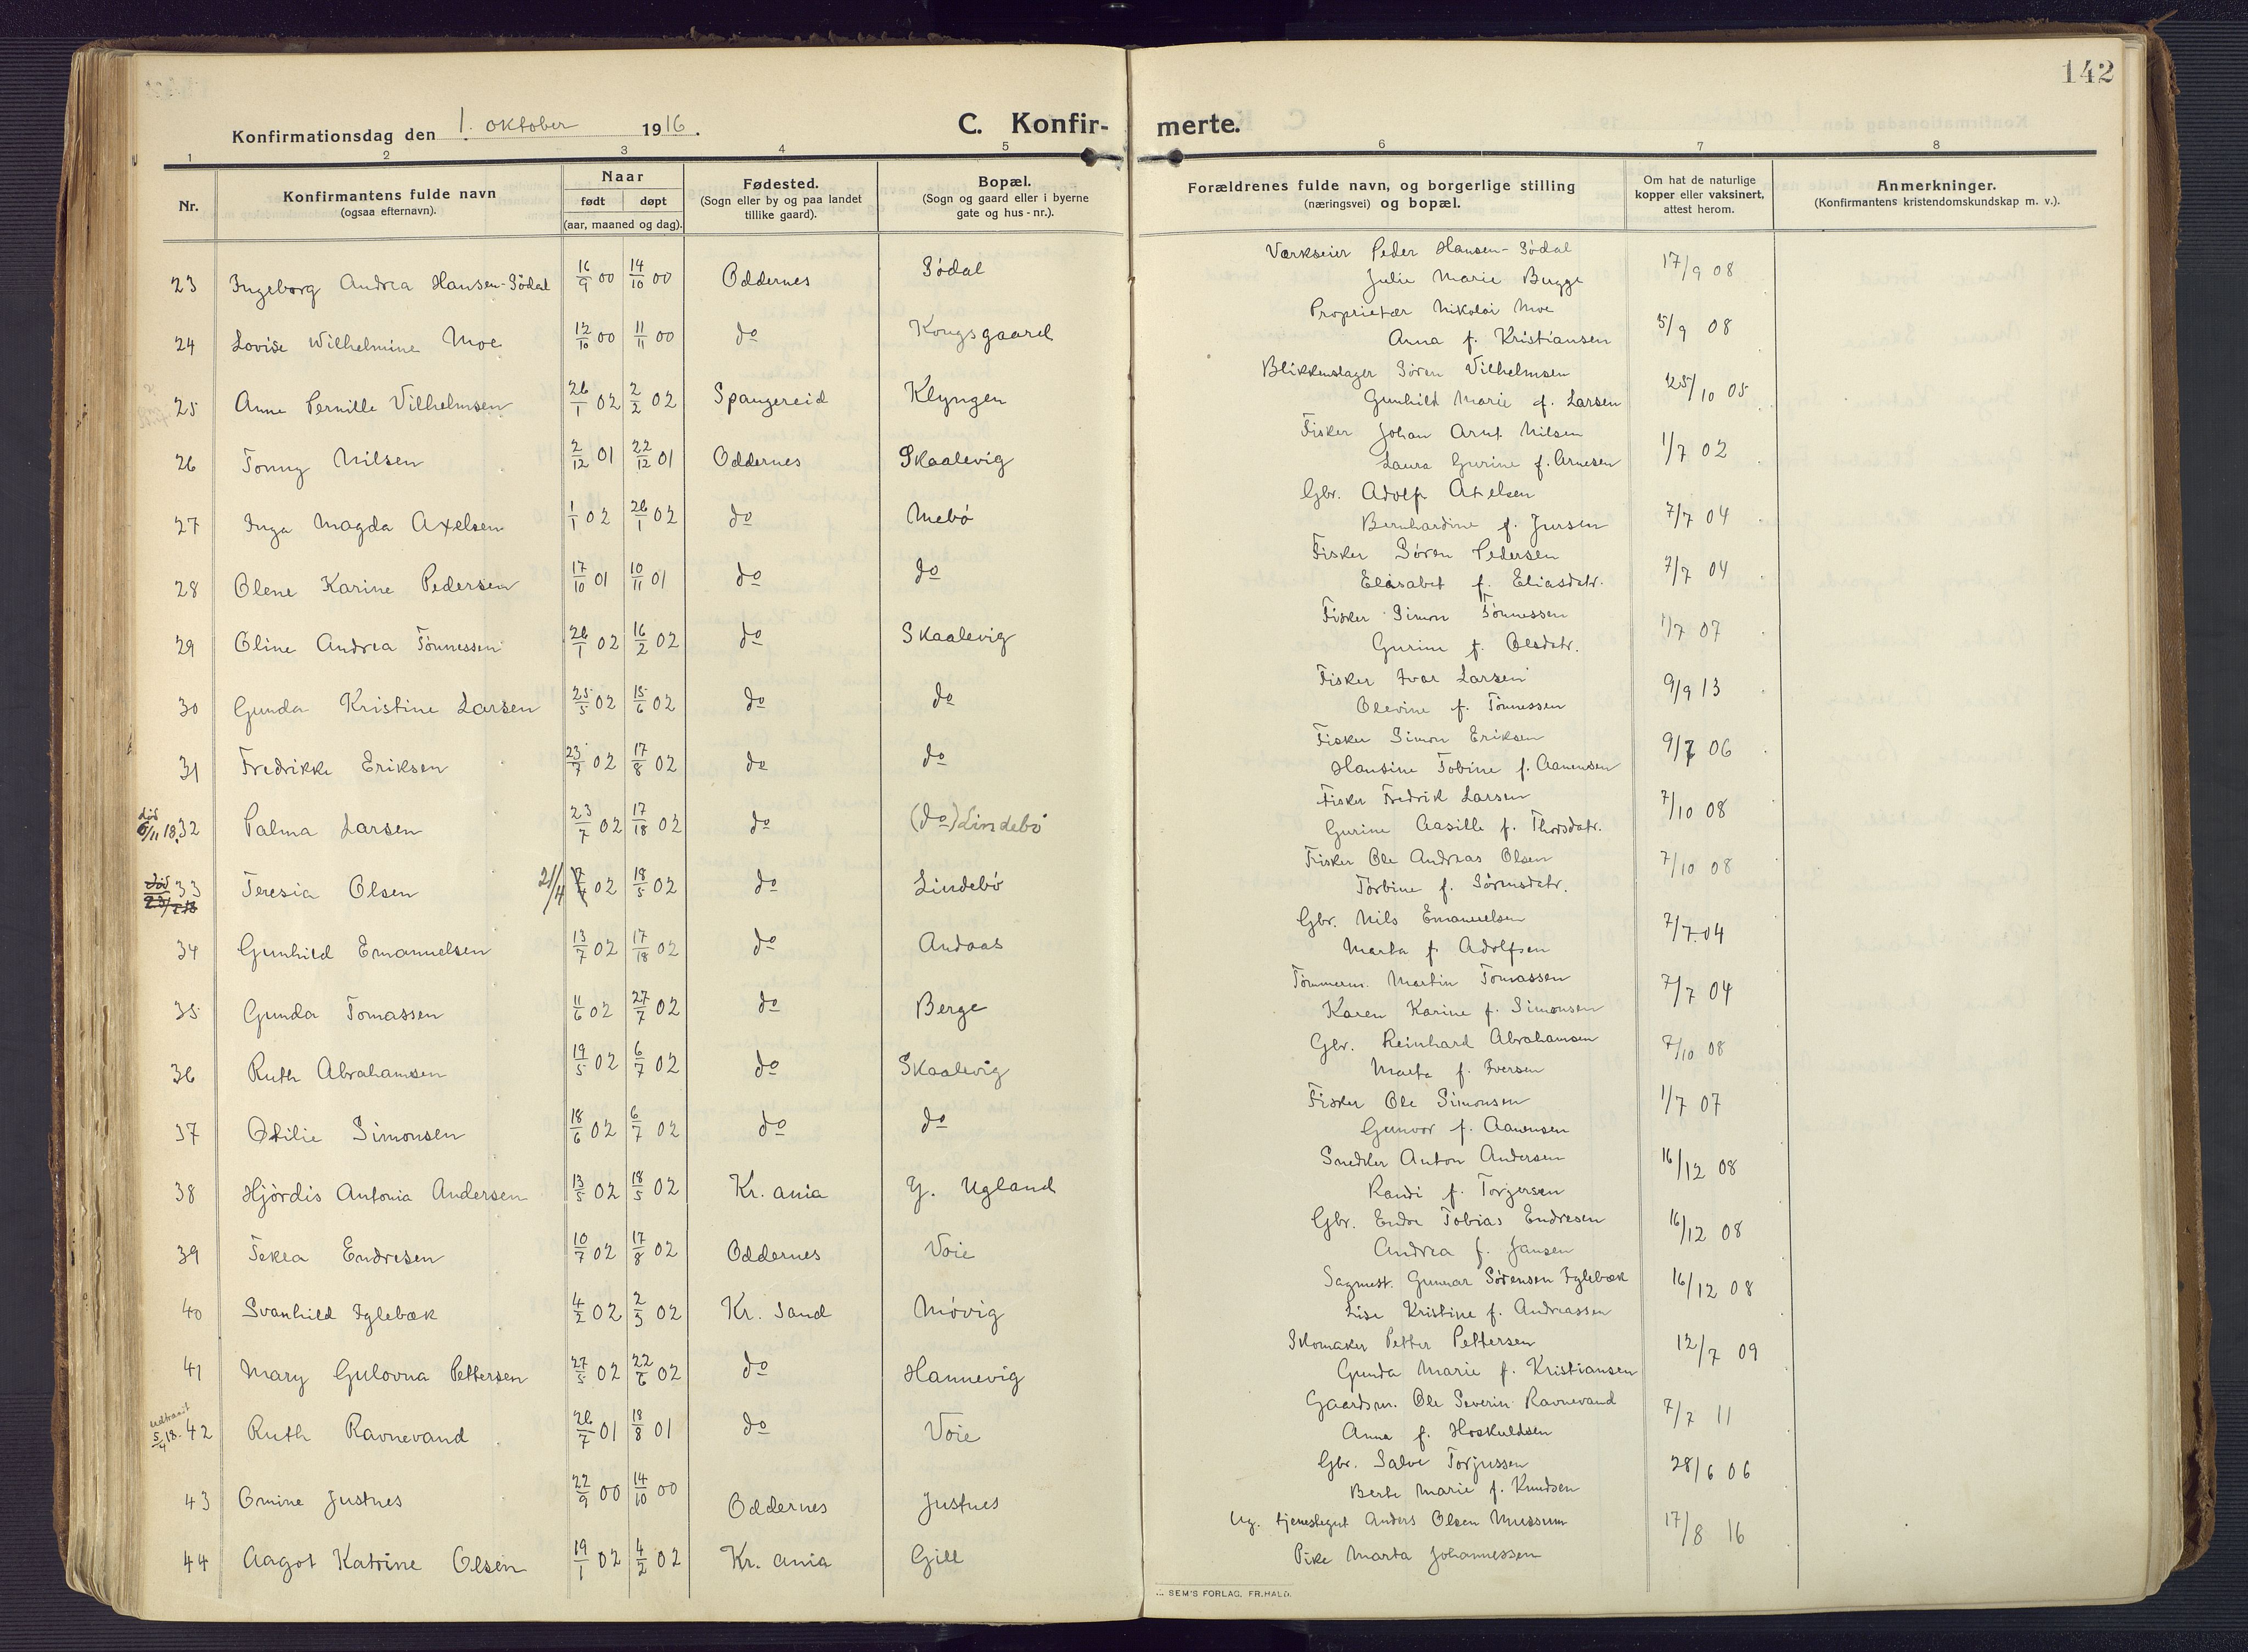 142
Konfirmationsdag den 1. oktober 1916.
C. Konfir- merte.
1 2 3 4 5 6 7 8
Nr.
Konfirmantens fulde navn
(ogsaa efternavn).
Naar
født døpt
(aar, maaned og dag).
Fødested.
(Sogn eller by og paa landet
tillike gaard).
Bopæl.
(Sogn og gaard eller i byerne
gate og hus-nr.).
Forældrenes fulde navn, og borgerlige stilling
(næringsvei) og bopæl.
Om hat de naturlige
kopper eller vaksinert,
attest herom.
Anmerkninger.
(Konfirmantens kristendomskundskap m. v.).
23 Ingeborg Andrea Hansen-Sødal 16/9 00 14/10 00 Oddernes Sødal Værkseier Peder Hansen-Sødal 17/9 08
Julie Marie Bugge
24 Lovise Wilhelmine Moe 12/10 00 11/11 00 do Kongsgaard Proprietær Nikolai Moe 5/9 08
Anna f. Kristiansen
25 Anne Pernille Vilhelmsen 26/1 02 2/2 02 Spangereid Klyngen Blikkenslager Søren Vilhelmsen 25/10 05
Gunhild Marie f. Larsen
26 Tonny Nilsen 2/12 01 22/12 01 Oddernes Skaalevig Fisker Johan Arnt Nilsen 1/7 02
Laura Gurine f. Arnesen
27 Inga Magda Axelsen 1/1 02 26/1 02 do Mebø Gbr. Adolf Axelsen 7/7 04
Bernhardine f. Jursen
28 Olene Karine Pedersen 17/10 01 10/11 01 do do Fisker Søren Pedersen 7/7 04
Elisabet f. Eliasdatr.
29 Oline Andrea Tønnessen 26/1 02 16/2 02 do Skaalevig Fisker Simon Tønnessen 1/7 07
Gurine f. Olsdatr.
30 Gunda Kristine Larsen 25/5 02 15/6 02 do do Fisker Ivar Larsen 9/9 13
Olevine f. Tønnessen
31 Fredrikke Eriksen 23/7 02 17/8 02 do do Fisker Simon Eriksen 9/7 06
Hansine Tobine f. Aanensen
død
6/11 18. 32 Palma Larsen 23/7 02 17/18 02 do (do) Lindebø Fisker Fredrik Larsen 7/10 08
Gurine Aasille f. Thorsdatr.
død
33 Teresia Olsen 21/4 02 18/5 02 do Lindebø Fisker Ole Andreas Olsen 7/10 08
Torbine f. Sørensdatr.
34 Gunhild Emanuelsen 13/7 02 17/18 02 do Andaas Gbr. Nils Emanuelsen 7/7 04
Marta f. Adolfsen
35 Gunda Tomassen 11/6 02 27/7 02 do Berge Tømmerm. Martin Tomassen 7/7 04
Karen Karine f. Simonsen
36 Ruth Abrahamsen 19/5 02 6/7 02 do Skaalevig Gbr. Reinhard Abrahamsen 7/10 08
Marta f. Iversen
37 Otilie Simonsen 18/6 02 6/7 02 do do Fisker Ole Simonsen 1/7 07
Gunvor f. Aanensen
38 Hjørdis Antonia Andersen 13/5 02 18/5 02 Kr. ania Y. Ugland Snedker Anton Andersen 16/12 08
Randi f. Torgersen
39 Tekla Endresen 10/7 02 17/8 02 Oddernes Voie Gbr. Endre Tobias Endresen 16/12 08
Andrea f. Jansen
40 Svanhild Iglebæk 4/2 02 2/3 02 Kr. sand Møvig Sagmest. Gunnar Sørensen Iglebæk 16/12 08
Lise Kristine f. Andreassen
41 Mary Gulovna Pettersen 27/5 02 22/6 02 do Hannevig Skomaker Petter Pettersen 12/7 09
Gunda Marie f. Kristiansen
udtraadt
5/4 18. 42 Ruth Ravnevand 26/7 01 18/8 01 do Voie Gaardsm. Ole Severin Ravnevand 7/7 11
Anna f. Hoskuldsen
43 Omine Justnes 22/9 00 14/10 00 Oddernes Justnes Gbr. Salve Torjussen 28/6 06
Berte Marie f. Knudsen
44 Aagot Katrine Olsen 19/1 02 4/2 02 Kr. ania Gill Ug. tjenestegut Anders Olsen Mussum 17/8 16
Pike Marta Johannessen
SEM'S FORLAG, FR.HALD.